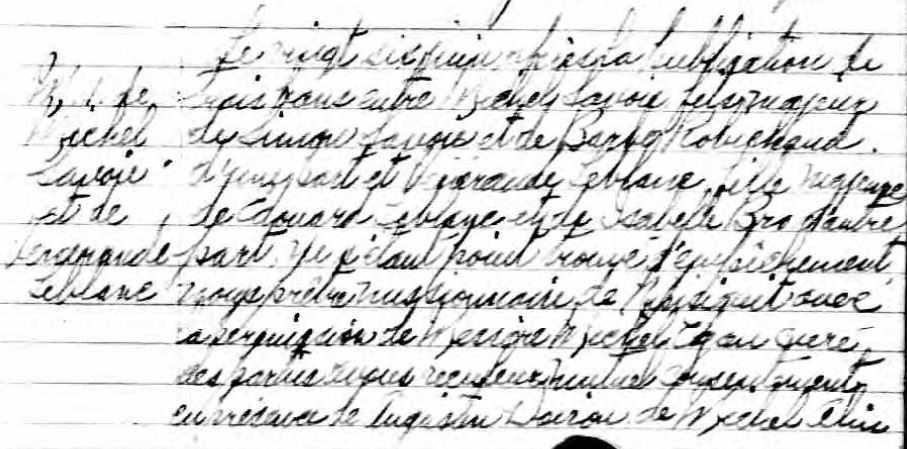 Le vingt six juin après la publication de
trois bans entre Michel Savoie fils majeur
de Simon Savoie et de Barbe Robichaud
d'une part et Leblanc fille majeure
de Edouard Leblanc et de Isabelle Bro d'autre
part. Ne s'étant point trouvé d'empêchement
nous prêtre missionnaire de avec
la permission de Messire Michel curé
des parties avons reçu leur mutuel consentement
en présence de de Michel
M. de
Michel
Savoie
et de
Leblanc